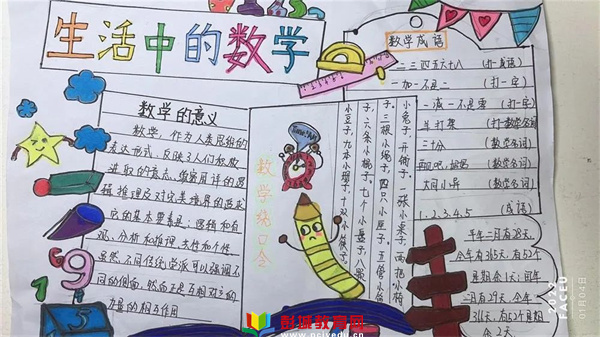 生活中的数学
数学的意义
数学，作为人类思维的
表达形式，反映了人们积极
进取的意志、缜密周详的逻
辑推理及对完美境界的追求
它的基本要素是：逻辑和直
观、分析和推理、共性和个性
虽然不同传统学派可以强调不
同的侧面，然而正是互相对立的
力量的相互作用
数学绕口令
小兔子，开铺子，一张小桌子，两把小椅
子，三根小绳子，四只小匣子，五管小笛
子，六条小棍子，七个小盘子，八颗
小豆子，九本小册子，十双小筷子。
数学成语
一二三四五六十八（打一成语）
一加一不是二（打一字）
一减一不是零（打一字）
羊打架（打一数学名词）
（数学名词）
再见吧，妈妈（数学名词）
大同小异（数学名词）
1、2、3、4、5（成语）
平年二月有28天，
今年有365天，有52个
星期余1天；闰年
二月有29天，今年
366天，有52个星期
余2天。
FACEU
01月04日
彭城教育网